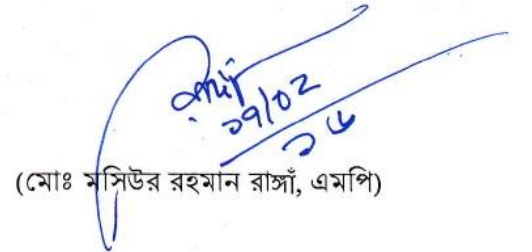 ১৭/০২
১৬
(মোঃ মসিউর রহমান রাঙ্গাঁ, এমপি)